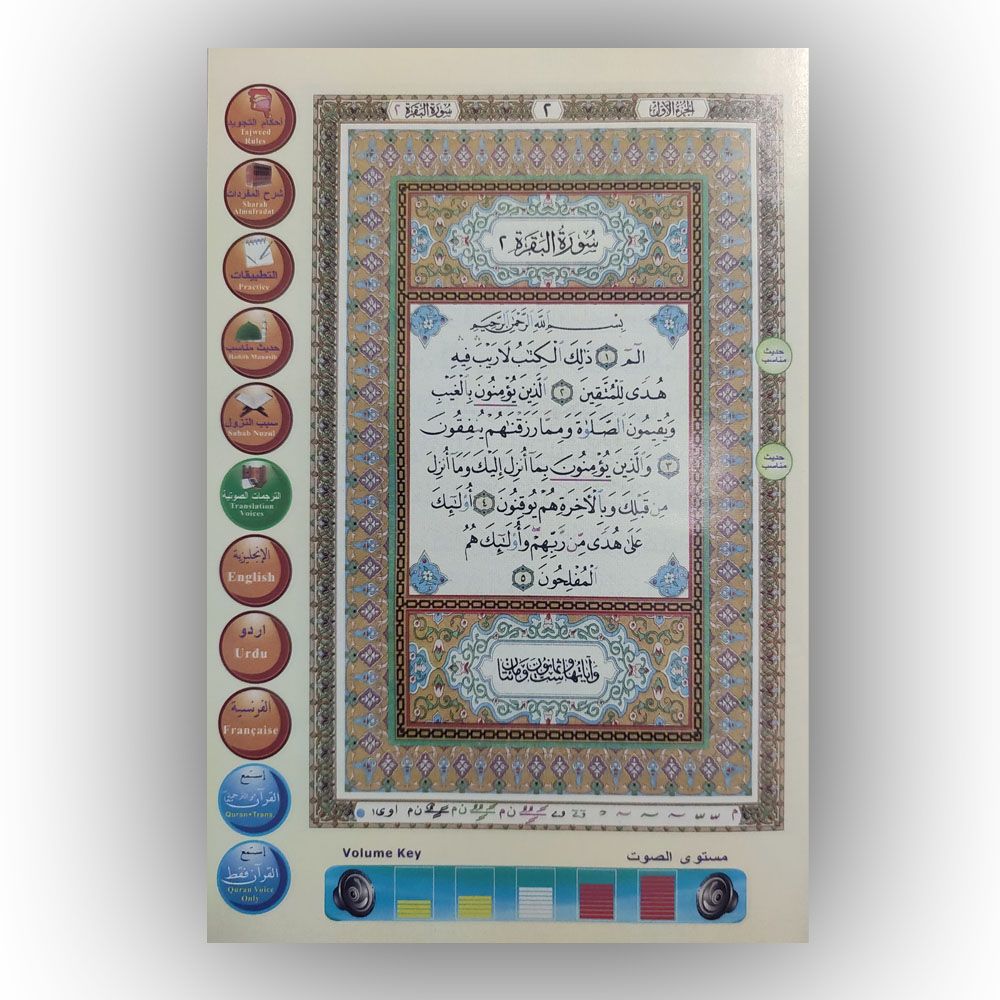 أحكام التجويد
Tajweed
Rules
شرح المفردات
Sharah
Almufradat
التطبيقات
Practice
حديث مناسب
Hadith Munasib
سبب النزول
Sabab Nuzul
الترجمات الصوتية
Translation
Voices
الإنجليزية
English
اردو
Urdu
الفرنسية
Française
إستمع
القرآن مع الترجمة
Quran+Trans.
إستمع
القرآن فقط
Quran Voice
Only
الجزء الأول
٢
سورة البقرة ٢
سُورَةُ البَقَرَةِ ٢
بِسْمِ اللَّهِ الرَّحْمَٰنِ الرَّحِيمِ
الٓمٓ ١ ذَٰلِكَ ٱلْكِتَٰبُ لَا رَيْبَ فِيهِ
هُدًى لِّلْمُتَّقِينَ ٢ ٱلَّذِينَ يُؤْمِنُونَ بِٱلْغَيْبِ
وَيُقِيمُونَ ٱلصَّلَوٰةَ وَمِمَّا رَزَقْنَٰهُمْ يُنفِقُونَ
٣ وَٱلَّذِينَ يُؤْمِنُونَ بِمَآ أُنزِلَ إِلَيْكَ وَمَآ أُنزِلَ
مِن قَبْلِكَ وَبِٱلْءَاخِرَةِ هُمْ يُوقِنُونَ ٤ أُو۟لَٰٓئِكَ
عَلَىٰ هُدًى مِّن رَّبِّهِمْ وَأُو۟لَٰٓئِكَ هُمُ
ٱلْمُفْلِحُونَ ٥
وَآيَاتُهَا سِتٌّ وَثَمَانُونَ وَمِائَتَانِ
حديث
مناسب
حديث
مناسب
Volume Key
مستوى الصوت